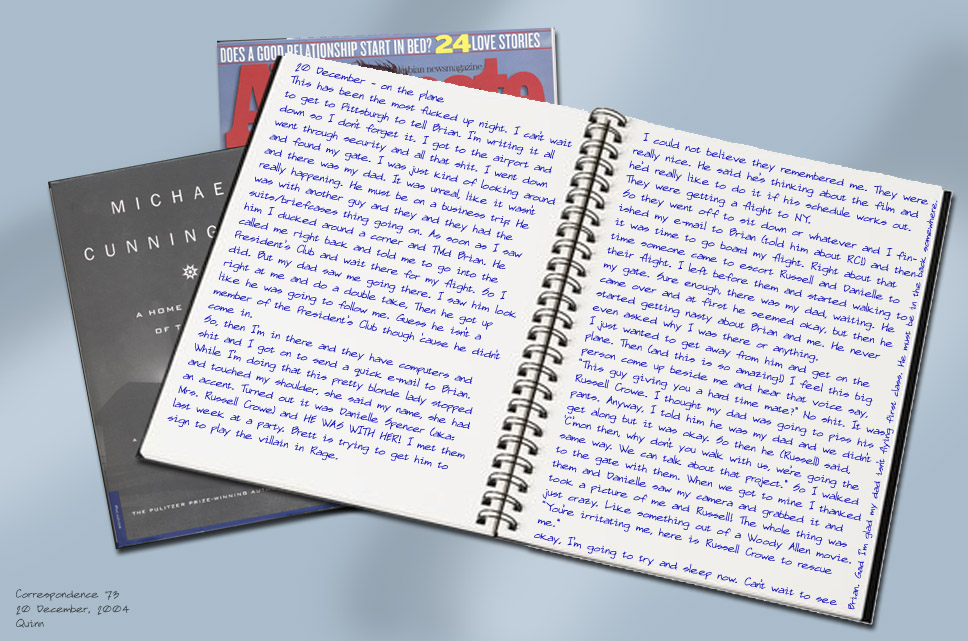 DOES A GOOD RELATIONSHIP START IN BED? 24 LOVE STORIES
newsmagazine
MICHAE
CUNNING
A HOME
OF T
THE PULITZER PRIZE-WINNING AUT
20 December - on the plane
This has been the most fucked up night. I can't wait
to get to Pittsburgh to tell Brian. I'm writing it all
down so I don't forget it. I got to the airport and
went through security and all that shit. I went down
and found my gate. I was just kind of looking around
and there was my dad. It was unreal, like it wasn't
really happening. He must be on a business trip. He
was with another guy and they and they had the
suits/briefcases thing going on. As soon as I saw
him I ducked around a corner and TMd Brian. He
called me right back and told me to go into the
President's Club and wait there for my flight. So I
did. But my dad saw me going there. I saw him look
right at me and do a double take. Then he got up
like he was going to follow me. Guess he isn't a
member of the President's Club though 'cause he didn't
come in.
So, then I'm in there and they have computers and
shit and I got on to send a quick e-mail to Brian.
While I'm doing that this pretty blonde lady stopped
and touched my shoulder, she said my name, she had
an accent. Turned out it was Danielle Spencer (aka:
Mrs. Russell Crowe) and HE WAS WITH HER! I met them
last week at a party. Brett is trying to get him to
sign to play the villain in Rage.
I could not believe they remembered me. They were
really nice. He said he's thinking about the film and
he'd really like to do it if his schedule works out.
They were getting a flight to NY.
So they went off to sit down or whatever and I fin-
ished my e-mail to Brian (told him about RC!) and then
it was time to go board my flight. Right about that
time someone came to escort Russell and Danielle to
their flight. I left before them and started walking to
my gate. Sure enough, there was my dad, waiting. He
came over and at first he seemed okay, but then he
started getting nasty about Brian and me. He never
even asked why I was there or anything.
I just wanted to get away from him and get on the
plane. Then (and this is so amazing!) I feel this big
person come up beside me and hear that voice say,
"This guy giving you a hard time mate?" No shit. It was
Russell Crowe. I thought my dad was going to piss his
pants. Anyway, I told him he was my dad and we didn't
get along but it was okay. So then he (Russell) said,
"C'mon then, why don't you walk with us, we're going the
same way. We can talk about that project." So I walked
to the gate with them. When we got to mine I thanked
them and Danielle saw my camera and grabbed it and
took a picture of me and Russell! The whole thing was
just crazy. Like something out of a Woody Allen movie.
"You're irritating me, here is Russell Crowe to rescue
me."
okay, I'm going to try and sleep now. Can't wait to see
Brian. God I'm glad my dad isn't flying first class. He must be in the back somewhere.
Correspondence 73
20 December, 2004
Quinn